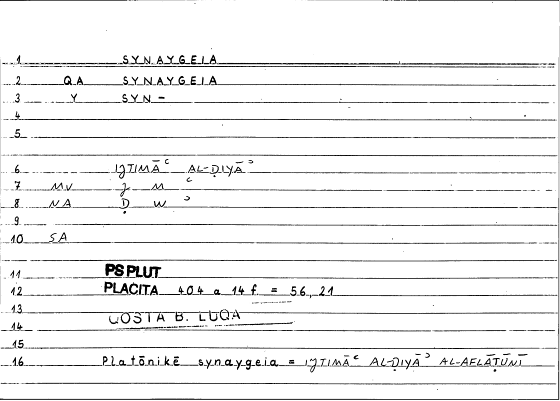 1 SYNAYGEIA
2 QA SYNAYGEIA
3 Y SYN-
4
5
6 IǦTIMĀʿ AL-ḌIYĀʾ
7 MV ǧ M ʿ
8 NA Ḍ W ʾ
9
10 SA
11 PSPLUT
12 PLACITA 404 a 14 f. = 56, 21
13 QOSTA B. LUQA
14
15
16 Platōnikē synaygeia = IǦTIMĀʿ AL-ḌIYĀʾ AL-AFLĀṬŪNĪ